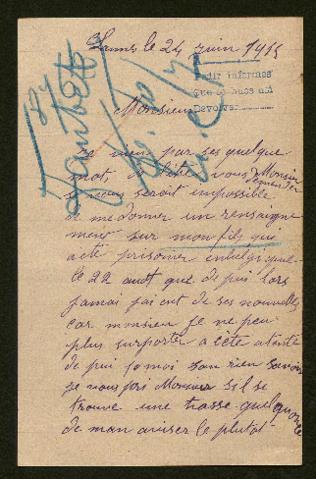 Lans le 24 juin 1915
Pedir informes
que se hace aqui
Devolver
Monsieur
Je vien par ses quelque
mot, de vous Monsieur
si vous serait impossible
de me donner un rensaigne
ment sur mon fils qui
a été prisonier en belgique
le 22 aout que de puis lors
jamai j'ai eut de ses nouvelles
car monsieur je ne peu
plus surporter a cete atente
de puis 10 moi san rien savoir
je vous pri Monsieur s'il se
trouve une trasse quelquonce
de man aviser le plutot